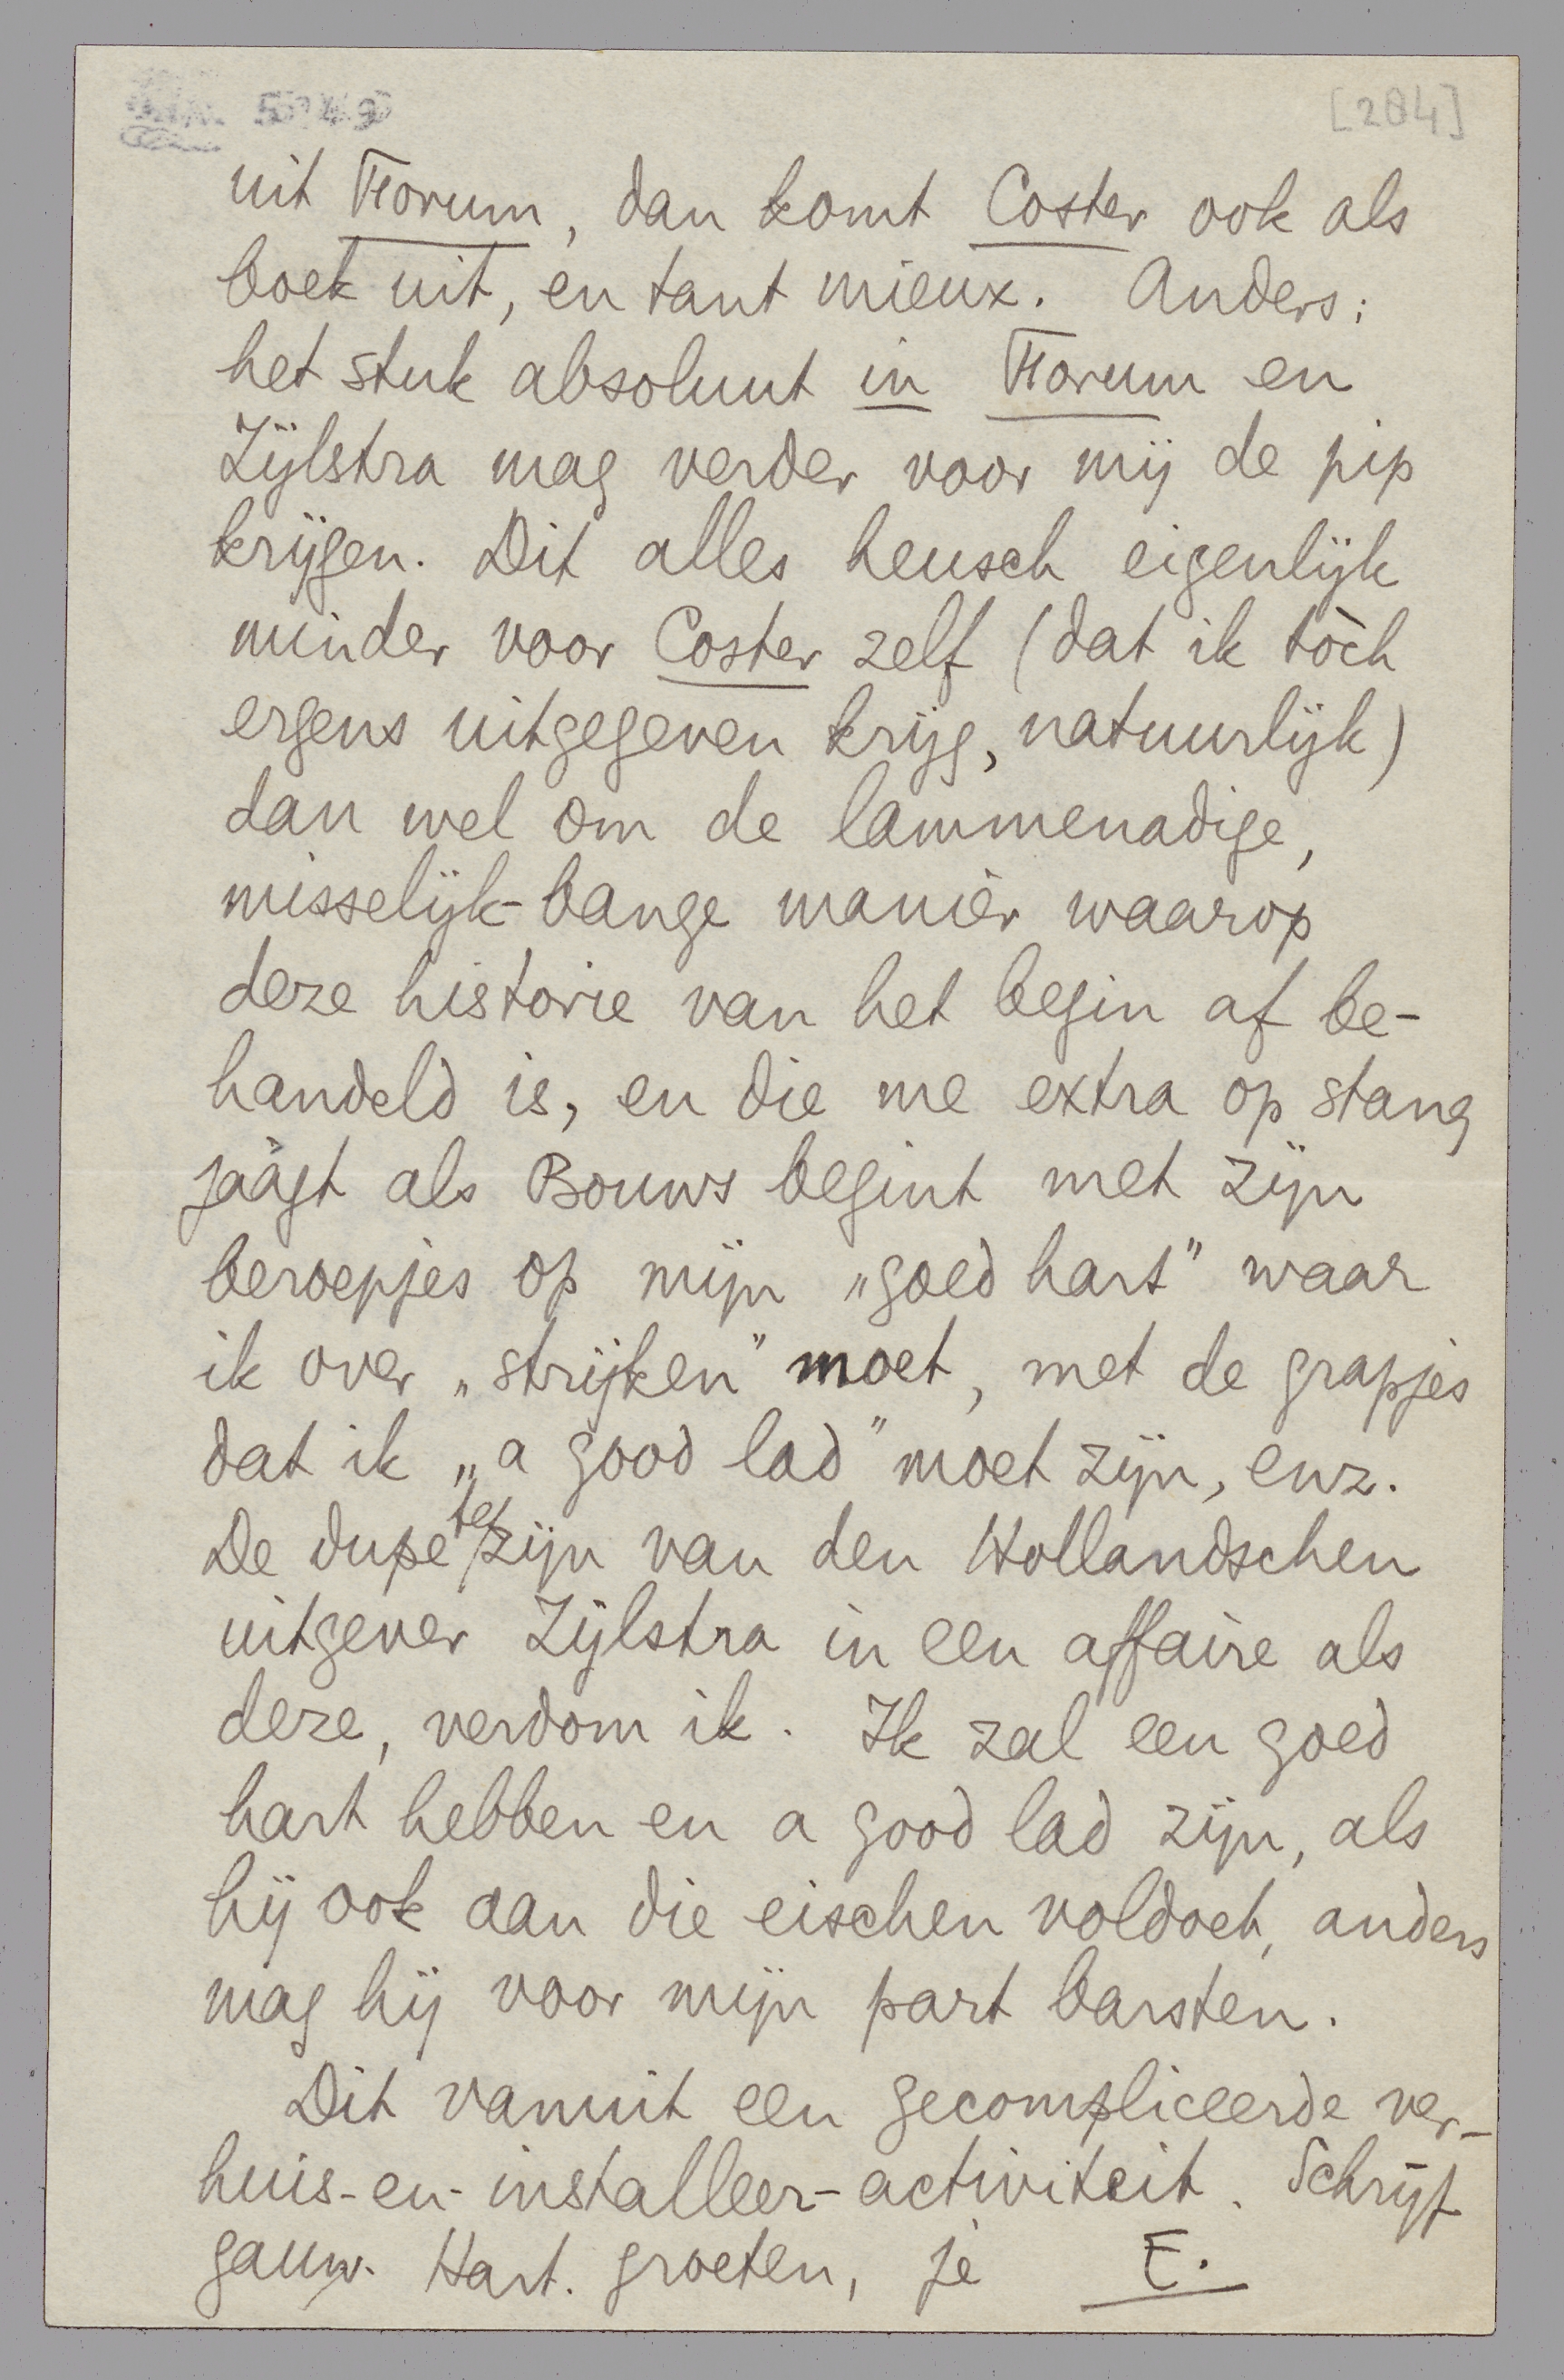 5749
[284]
uit Forum, dan komt Coster ook als
boek uit, en tant mieux. Anders:
het stuk absoluut in Forum en
Zijlstra mag verder voor mij de pip
krijgen. Dit alles heusch eigenlijk
minder voor Coster zelf (dat ik tòch
ergens uitgegeven krijg, natuurlijk)
dan wel om de lammenadige,
misselijk-bange manier waarop
deze historie van het begin af be-
handeld is, en die me extra op stang
jaagt als Bouws begint met zijn
beroepjes op mijn „goed hart” waar
ik over „strijken” moet, met de grapjes
dat ik „a good lad” moet zijn, enz.
De dupe te zijn van den Hollandschen
uitgever Zijlstra in een affaire als
deze, verdom ik. Ik zal een goed
hart hebben en a good lad zijn, als
hij ook aan die eischen voldoet, anders
mag hij voor mijn part barsten.
Dit vanuit een gecompliceerde ver-
huis-en-installeer-activiteit. Schrijf
gauw. Hart. groeten, je E.